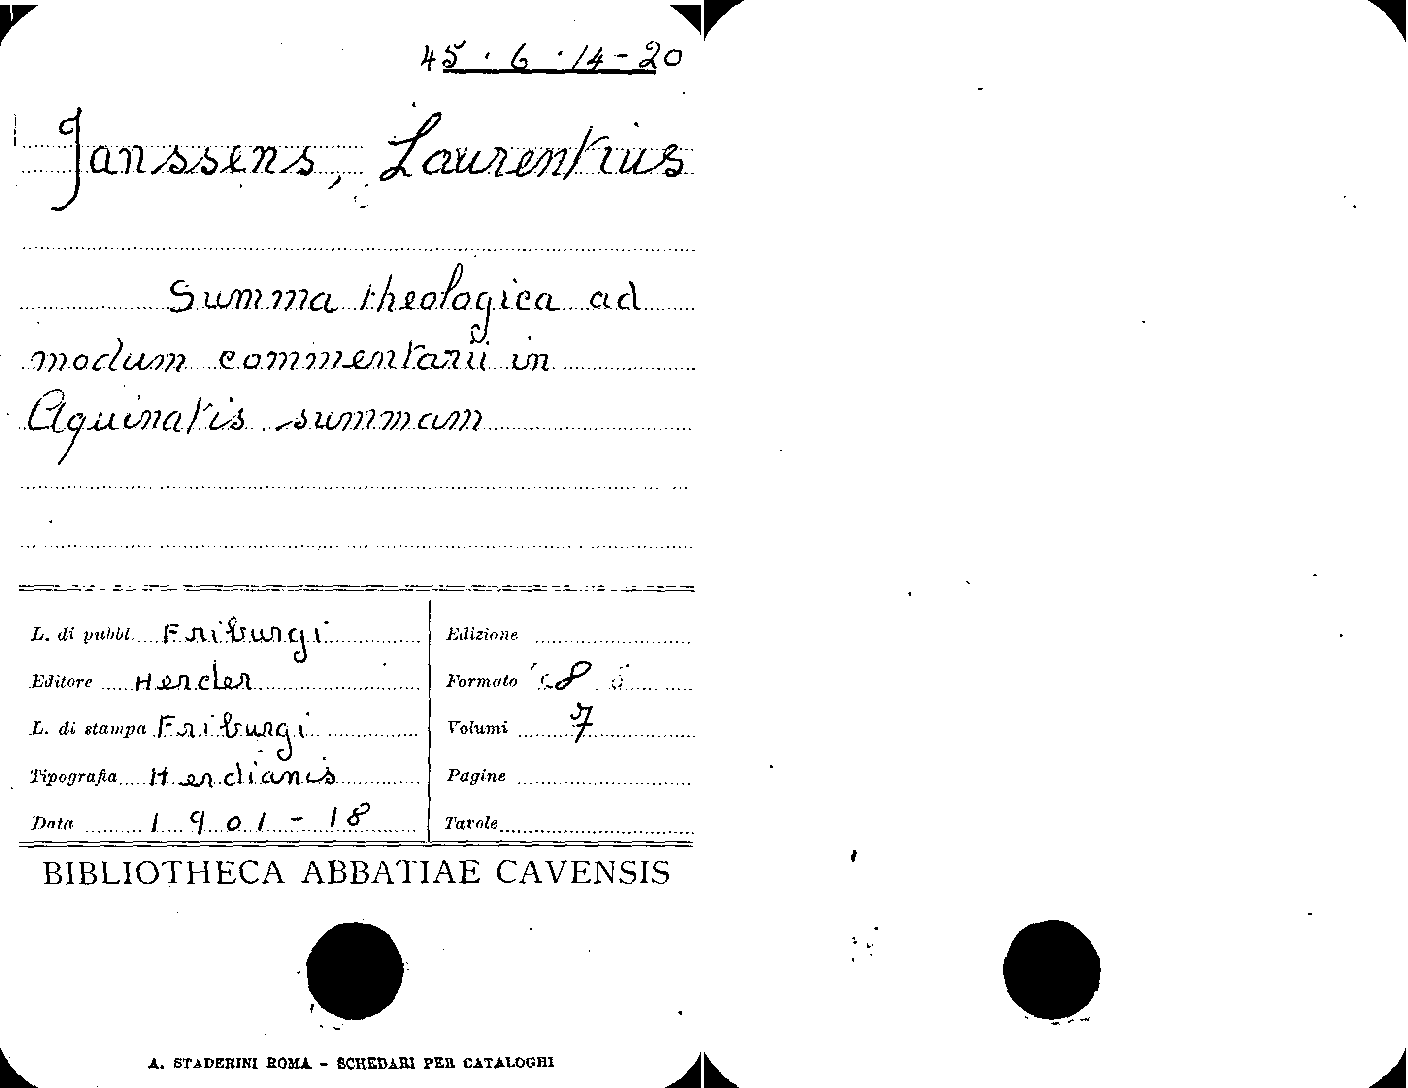 45 · 6 · 14-20
Janssens, Laurentius
Summa theologica ad
modum commentarii in
Aquinatis summam
L. di pubbl. Friburgi
Editore Herder
L. di stampa Friburgi
Tipografia Herdianis
Data 1901-18
Edizione
Formato 8
Volumi 7
Pagine
Tavole
BIBLIOTHECA ABBATIAE CAVENSIS
A. STADERINI ROMA - SCHEDARI PER CATALOGHI